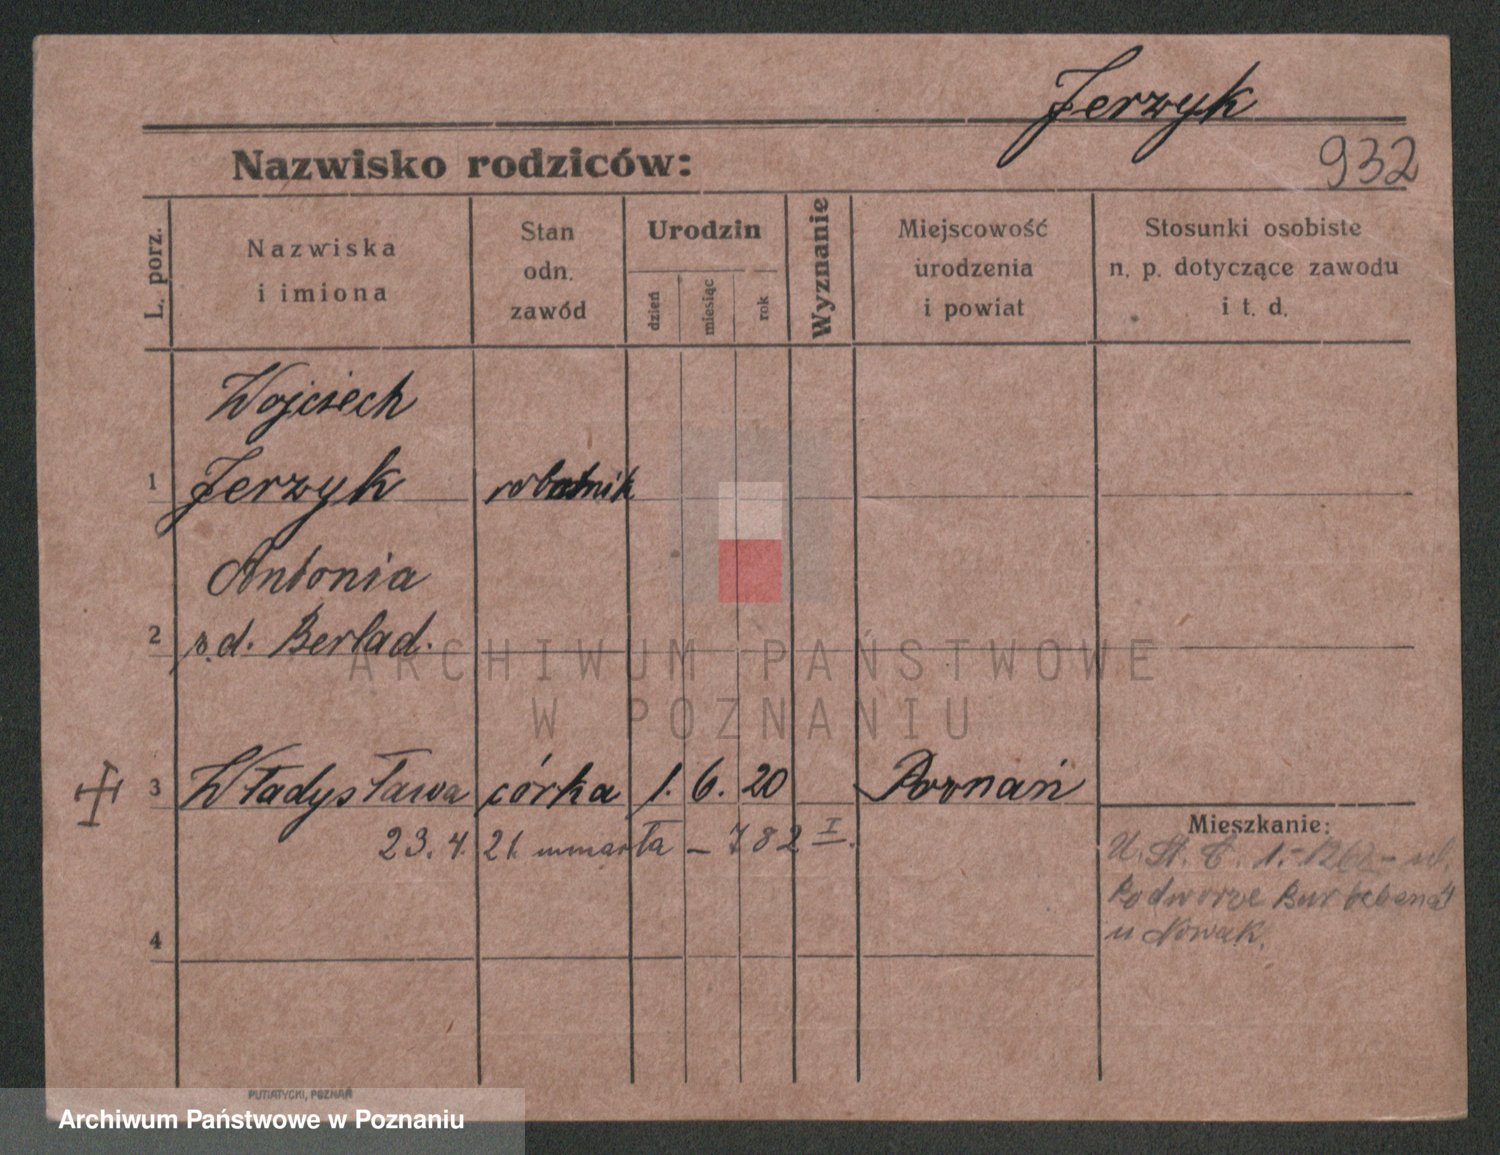 Jerzyk
932
Nazwisko rodziców:
L. porz.
Nazwiska
i imiona
Stan
odn.
zawód
Urodzin
dzień
miesiąc
rok
Wyznanie
Miejscowość
urodzenia
i powiat
Stosunki osobiste
n. p. dotyczące zawodu
i t. d.
Wojciech
1 Jerzyk robotnik
Antonia
2 z d. Berlad.
ARCHIWUM PAŃSTWOWE
W POZNANIU
3 Władysława córka 1. 6. 20 Poznań
23. 4. 21. umarła – 782 I.
Mieszkanie:
1262 ul.
Podworze
u Nowak.
4
PUTIATYCKI, POZNAŃ
Archiwum Państwowe w Poznaniu